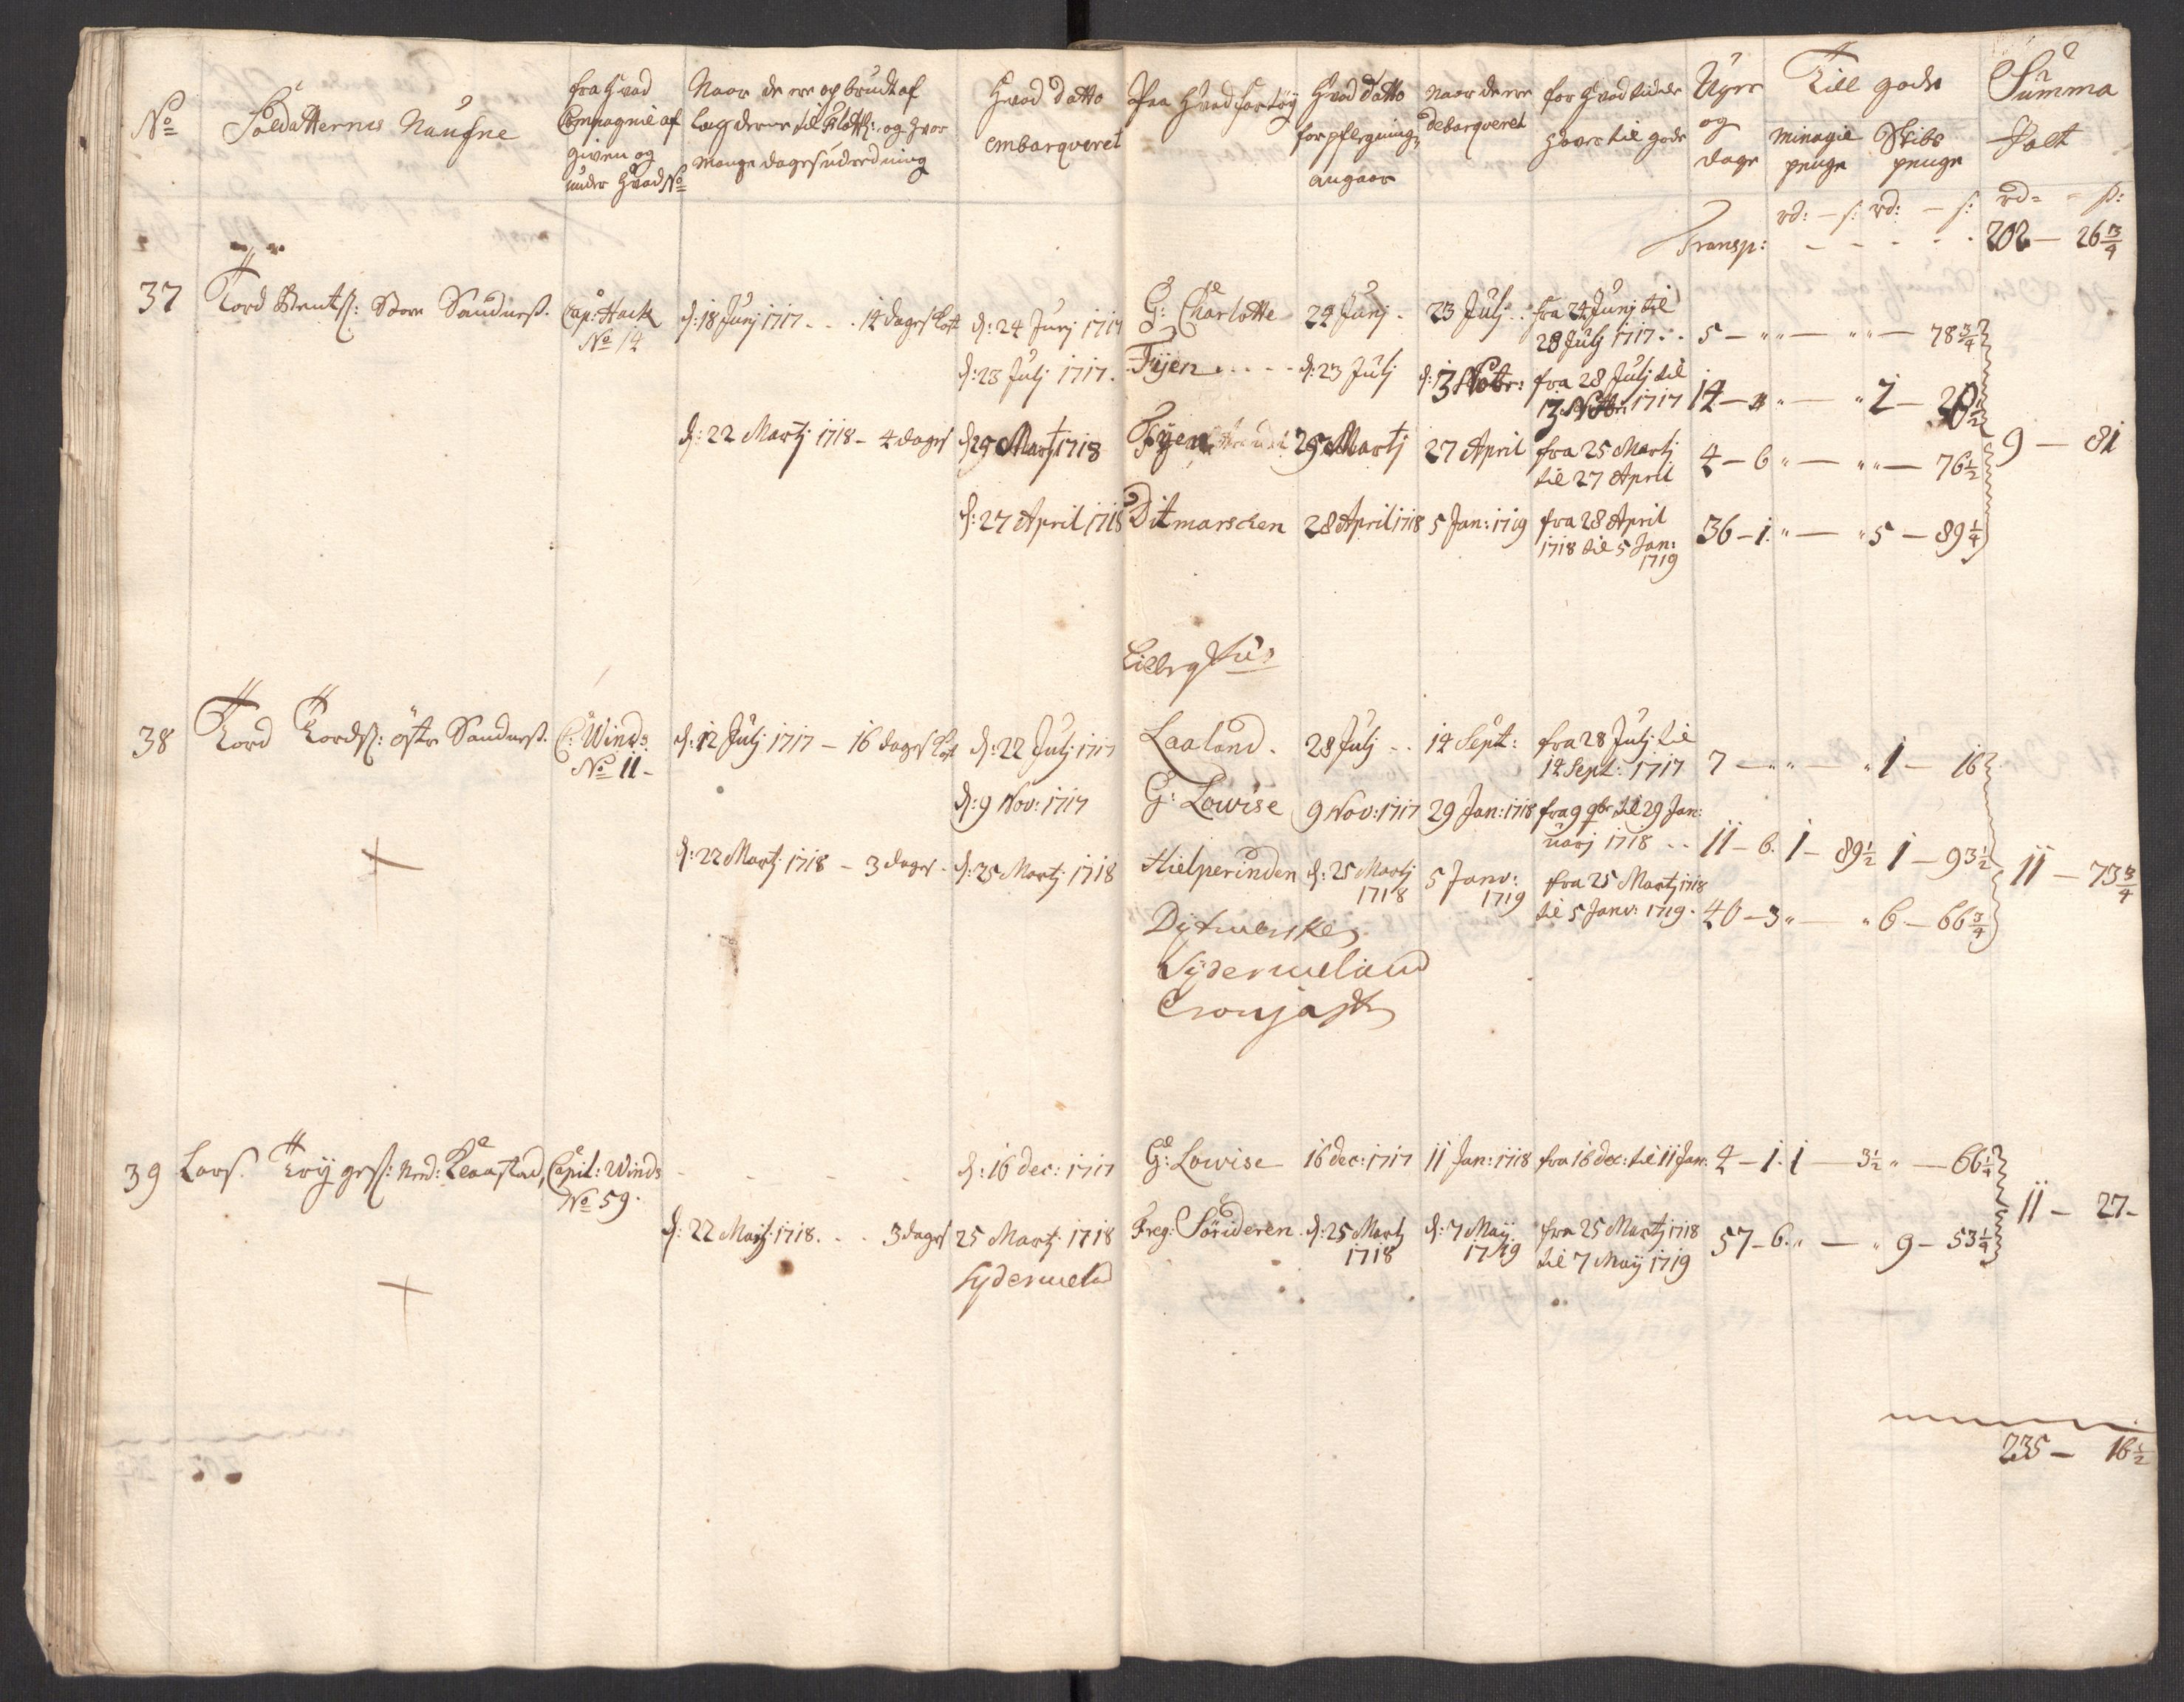 No
Soldatternes Naufne
fra hvad Compagnie af given og under hvad No
Naar de ere opbrudt af og hvor mange dages udredning
Hvad datto embarqveret
Paa hvad fartøy
Hvad datto forpflegning angaar
Naar de ere debarqveret
for hvad tid de haver til gode
Uger og dage
Till gode
minagie penge
Skibs penge
Summa
rd: — s: rd: — s: rd= — s:
Transp: - - - - - 202 — 26 3/4
37 Tord Bentß: Store Sandness. Cap: Hack No 14
d: 18 Junj 1717 . . . 14 dages kost d: 24 Junj 1717 G: Charlotte 24 Junj . 23 Julj . . fra 24 Junj til 28 Julj 1717 . . 5 — " " — " " — 78 3/4
d: 23 Julj 1717 . Fyen . . . . . d: 23 Julj d: 13 Nobr: fra 28 Julj til 13 Nobr: 1717 14 — " — " 2 —
d: 22 Martj 1718 — 4 dages d 25 Martj 1718 Fyen 25 Martj 27 April fra 25 Martj til 27 April 4 — 6 " — " " — 76 1/2 9 — 81
d: 27 April 1718 Ditmarschen 28 April 1718 5 Jan: 1719 fra 28 April 1718 til 5 Jan: 1719 36 — 1 " — " 5 — 89 1/4
38 Tord Tordß: östre Sandness. C: Winds No 11 -
d: 12 Julj 1717 — 16 dages kost d: 22 Julj 1717 Laaland . 28 Julj . . 14 Sept: fra 28 Julj til 14 Sept: 1717 7 — " " — " 1 — 16
d: 9 Nov: 1717 G: Lowise 9 Nov: 1717 29 Jan: 1718 fra 9 9br til 29 Januarj 1718 . . 11 — 6 . 1 — 89 1/2 1 — 93 1/2 11 — 73 3/4
d: 22 Martj 1718 — 3 dages . d: 25 Martj 1718 Hielperinden d: 25 Martj 1718 5 Janv: 1719 fra 25 Martj 1718 til 5 Janv: 1719 . 40 — 3 " — " 6 — 66 3/4
Dytmersken
Sydermeland
Cronjagt
39 Lars Trygeß: Ned: Kaastad, Capit: Winds No 59 .
- - - - d: 16 dec: 1717 G: Lowise 16 dec: 1717 11 Jan: 1718 fra 16 dec: til 11 Jan: 4 — 1 . 1 — 3 1/2 " — 66 1/4
d: 22 Martj 1718 . . . 3 dages 25 Martj 1718 Freg: Söridderen . d: 25 Martj 1718 d: 7 Maij 1719 fra 25 Martj 1718 til 7 Maij 1719 57 — 6 . " — " 9 — 53 1/4 11 — 27 -
Sydermeland
235 — 16 1/2